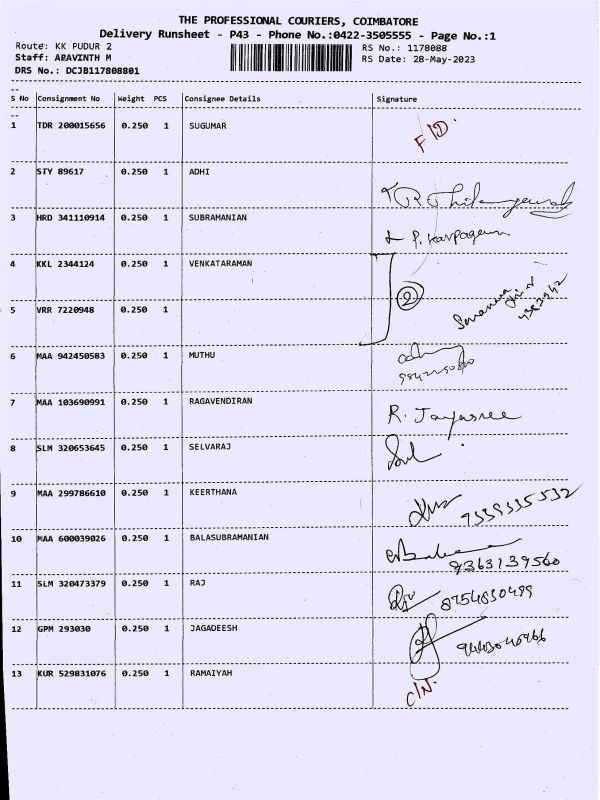 THE PROFESSIONAL COURIERS, COIMBATORE
Delivery Runsheet - P43 - Phone No.:0422-3505555 - Page No.:1
Route: KK PUDUR 2
RS No.: 1178088
Staff: ARAVINTH M
RS Date: 28-May-2023
DRS No.: DCJB117808801
S No Consignment No Weight PCS Consignee Details Signature
1 TDR 200015656 0.250 1 SUGUMAR F/D.
2 STY 89617 0.250 1 ADHI
3 HRD 341110914 0.250 1 SUBRAMANIAN P. Karpagam
4 KKL 2344124 0.250 1 VENKATARAMAN
2
5 VRR 7220948 0.250 1
6 MAA 942450583 0.250 1 MUTHU
7 MAA 103690991 0.250 1 RAGAVENDIRAN R. Jayasree
8 SLM 320653645 0.250 1 SELVARAJ
9 MAA 299786610 0.250 1 KEERTHANA
10 MAA 600039026 0.250 1 BALASUBRAMANIAN
9363139560
11 SLM 320473379 0.250 1 RAJ 8754830499
12 GPM 293030 0.250 1 JAGADEESH
13 KUR 529831076 0.250 1 RAMAIYAH C/N.